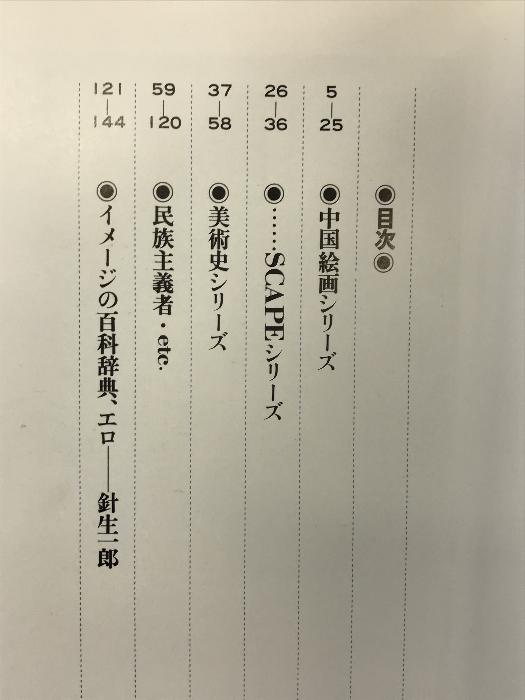 ◉目次◉
5|25
◉中国絵画シリーズ
26|36
◉……SCAPEシリーズ
37|58
◉美術史シリーズ
59|120
◉民族主義者・etc.
121|144
◉イメージの百科辞典、エロ——針生一郎